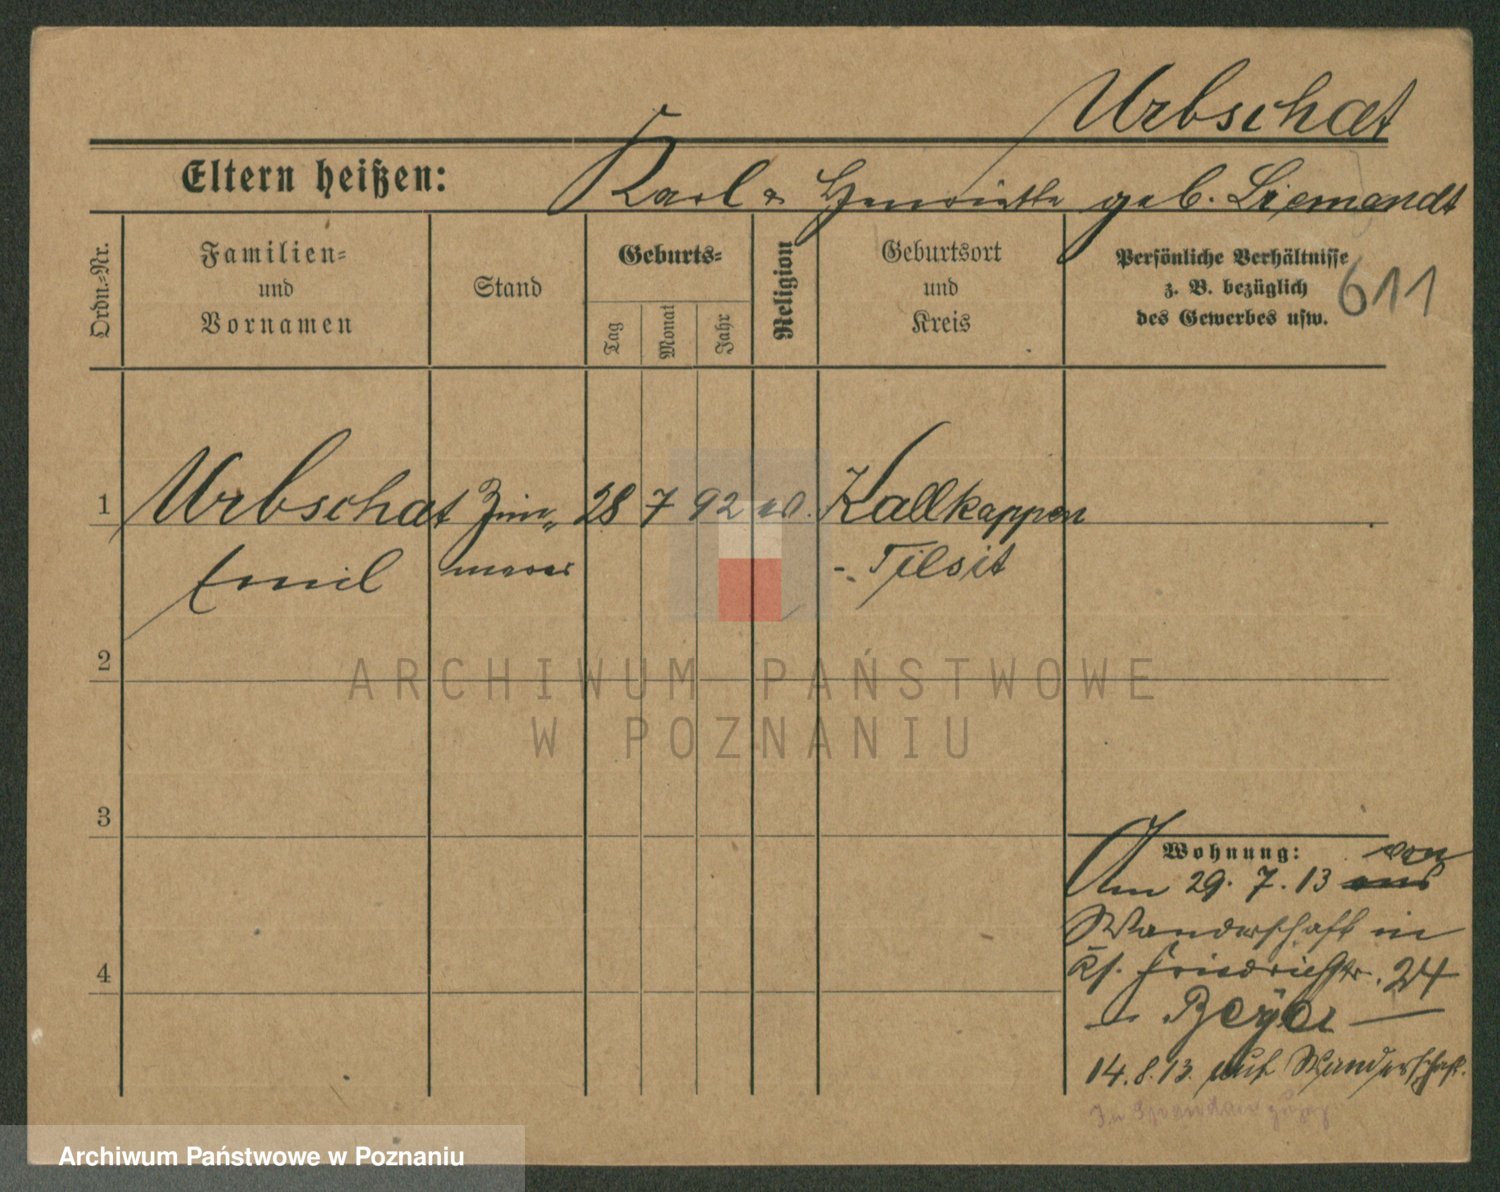 Urbschat
Eltern heißen: Karl & Henriette geb. Liemandt
Ordn.-Nr.
Familien-
und
Vornamen
Stand
Geburts-
Tag
Monat
Jahr
Religion
Geburtsort
und
Kreis
Persönliche Verhältnisse
z. B. bezüglich
des Gewerbes usw.
611
1 Urbschat Zim- 28 7 92 ev. Kallkappen
Emil merer - Tilsit
2
ARCHIWUM PAŃSTWOWE
W POZNANIU
3
4
Wohnung: von
Am 29. 7. 13 aus
Wanderschaft in
Friedrichstr. 24
Beyer
14. 8. 13. auf Wanderschaft.
In Spandau
Archiwum Państwowe w Poznaniu